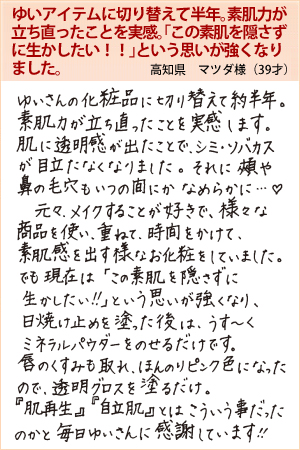 ゆいアイテムに切り替えて半年。素肌力が
立ち直ったことを実感。「この素肌を隠さず
に生かしたい！！」という思いが強くなり
ました。
高知県　マツダ様（39才）
ゆいさんの化粧品に切り替えて約半年。
素肌力が立ち直ったことを実感します。
肌に透明感が出たことで、シミ・ソバカス
が目立たなくなりました。それに頬や
鼻の毛穴もいつの間にか なめらかに…♡
元々、メイクすることが好きで、様々な
商品を使い、重ねて、時間をかけて、
素肌感を出す様なお化粧をしていました。
でも現在は「この素肌を隠さずに
生かしたい!!」という思いが強くなり、
日焼け止めを塗った後は、うす〜く
ミネラルパウダーをのせるだけです。
唇のくすみも取れ、ほんのりピンク色になった
ので、透明グロスを塗るだけ。
『肌再生』『自立肌』とはこういう事だった
のかと毎日ゆいさんに感謝しています!!